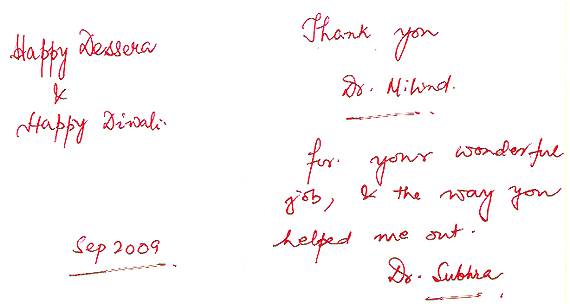 Happy Dessera
&
Happy Diwali.
Sep 2009
Thank you
Dr. Milind.
for. your wonderful
job, & the way you
helped me out.
Dr. Subhra